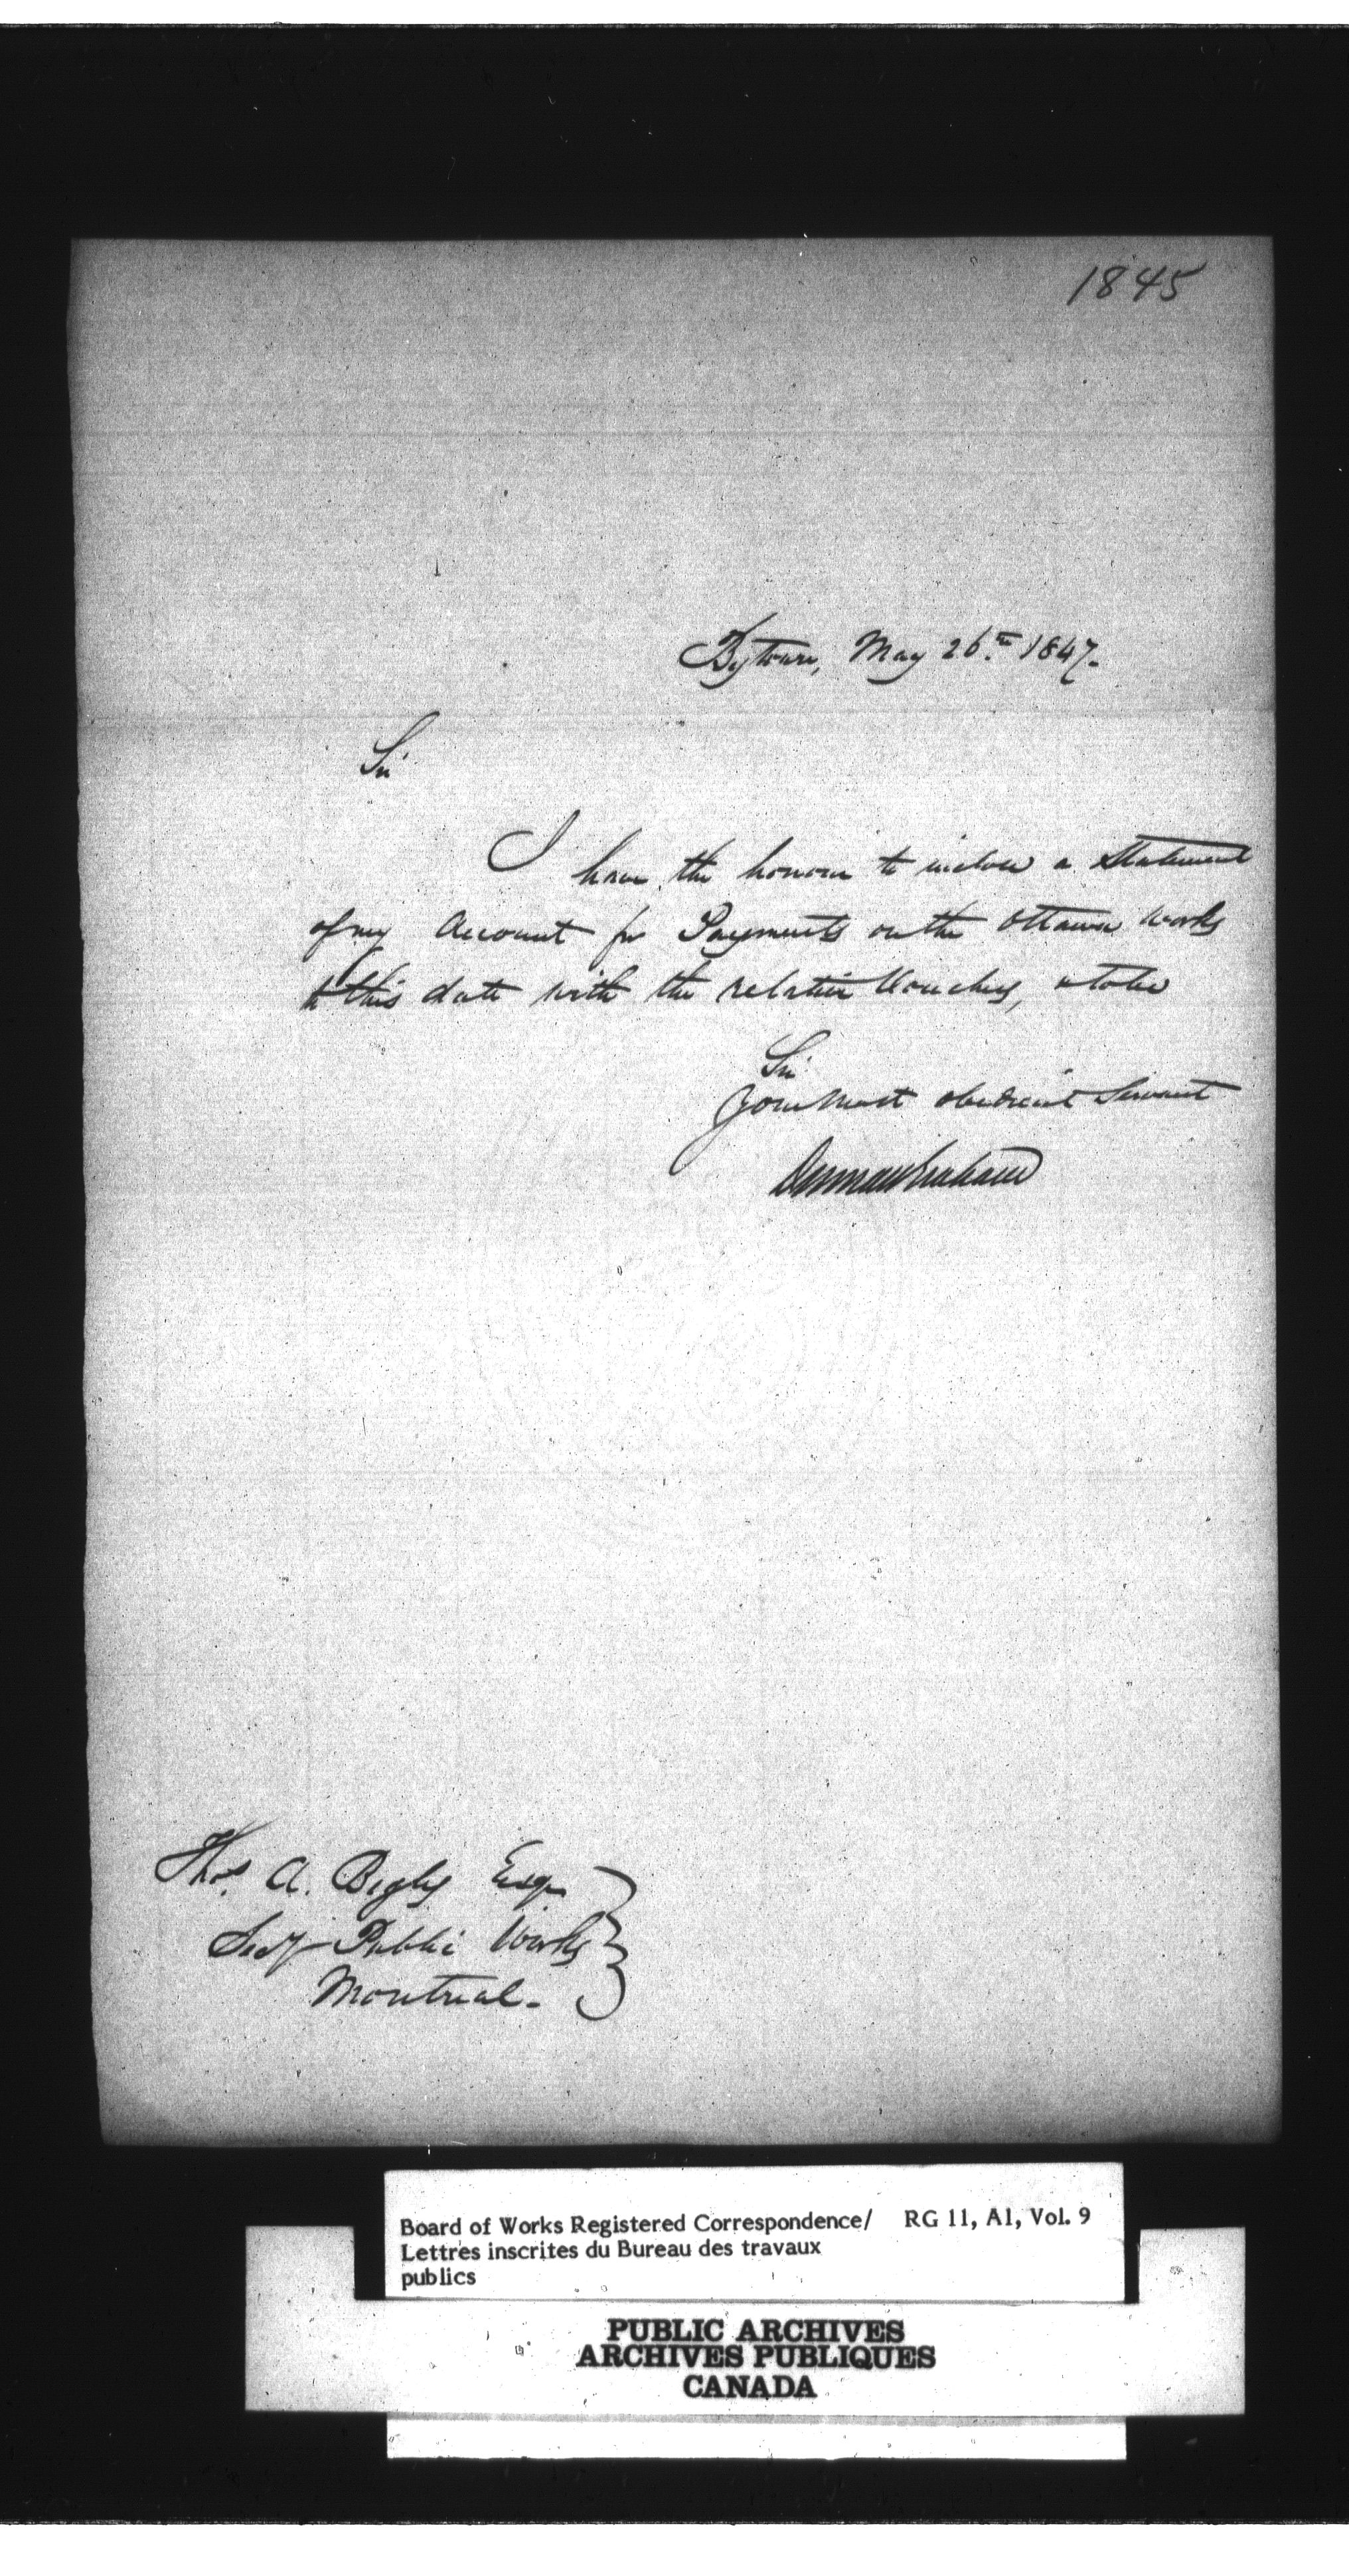 1845
Bytown, May 26th 1847.
Sir
I have the honour to inclose a Statement
of my Account for Payments on the Ottawa Works
to this date with the relative Vouchers, & to be
Sir
Your Most obedient Servant
Thos. A. Begly Esqr
Secy Public Works
Montreal.
Board of Works Registered Correspondence/ RG 11, A1, Vol. 9
Lettres inscrites du Bureau des travaux
publics
PUBLIC ARCHIVES
ARCHIVES PUBLIQUES
CANADA